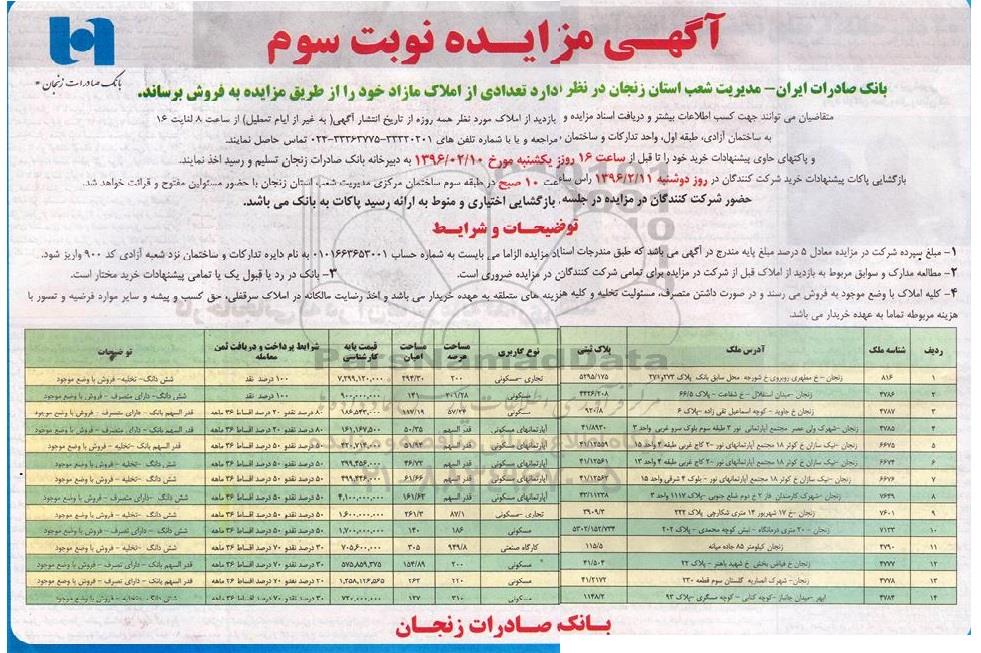 آگهی مزایده نوبت سوم
بانک صادرات زنجان
بانک صادرات ایران- مدیریت شعب استان زنجان در نظر دارد تعدادی از املاک مازاد خود را از طریق مزایده به فروش برساند.
متقاضیان می توانند جهت کسب اطلاعات بیشتر و دریافت اسناد مزایده و بازدید از املاک مورد نظر همه روزه از تاریخ انتشار آگهی( به غیر از ایام تعطیل) از ساعت ۸ لغایت ۱۶
به ساختمان آزادی، طبقه اول، واحد تدارکات و ساختمان مراجعه و یا با شماره تلفن های ۳۳۳۲۰۲۰۱-۳۳۳۶۳۷۷۵-۰۲۴ تماس حاصل نمایند.
و پاکتهای حاوی پیشنهادات خرید خود را تا قبل از ساعت ۱۶ روز یکشنبه مورخ ۱۳۹۶/۰۲/۱۰ به دبیرخانه بانک صادرات زنجان تسلیم و رسید اخذ نمایند.
بازگشایی پاکات پیشنهادات خرید شرکت کنندگان در روز دوشنبه ۱۳۹۶/۲/۱۱ راس ساعت ۱۰ صبح در طبقه سوم ساختمان مرکزی مدیریت شعب استان زنجان با حضور مسئولین مفتوح و قرائت خواهد شد.
حضور شرکت کنندگان در مزایده در جلسه بازگشایی اختیاری و منوط به ارائه رسید پاکات به بانک می باشد.
توضیحات و شرایط
۱- مبلغ سپرده شرکت در مزایده معادل ۵ درصد مبلغ پایه مندرج در آگهی می باشد که طبق مندرجات اسناد مزایده الزاما می بایست به شماره حساب ۰۱۰۱۶۶۳۶۵۳۰۰۱ به نام دایره تدارکات و ساختمان نزد شعبه آزادی کد ۹۰۰ واریز شود.
۲- مطالعه مدارک و سوابق مربوط به بازدید از املاک قبل از شرکت در مزایده برای تمامی شرکت کنندگان در مزایده ضروری است. ۳- بانک در رد یا قبول یک یا تمامی پیشنهادات خرید مختار است.
۴- کلیه املاک با وضع موجود به فروش می رسند و در صورت داشتن متصرف، مسئولیت تخلیه و کلیه هزینه های متعلقه به عهده خریدار می باشد و اخذ رضایت مالکانه در املاک سرقفلی، حق کسب و پیشه و سایر موارد فرضیه و تمسور با
هزینه مربوطه تماما به عهده خریدار می باشد.
ردیف شناسه ملک آدرس ملک پلاک ثبتی نوع کاربری مساحت عرصه مساحت اعیان قیمت پایه کارشناسی شرایط پرداخت و دریافت ثمن معامله توضیحات
۱ ۸۱۶ زنجان - خ مطهری روبروی خ شورجه محل سابق بانک پلاک ۲۷۳و۲۷۱ ۵۲۹۵/۱۷۵ تجاری -مسکونی ۲۰۰ ۲۹۴/۳۰ ۷,۲۹۹,۱۲۰,۰۰۰ ۱۰۰ درصد نقد شش دانگ- تخلیه- فروش با وضع موجود
۲ ۴۷۸۶ زنجان -میدان استقلال -خ شفاعت - پلاک ۶۶/۵ مسکونی ۲۰۱/۲۸ ۱۴۱ ۹۰۰,۰۰۰,۰۰۰ ۱۰۰ درصد نقد شش دانگ- دارای متصرف - فروش با وضع موجود
۳ ۴۷۸۳ زنجان خ جاوید - کوچه اسماعیل تقی زاده -پلاک ۶ ۹۲۰/۸ مسکونی قدر السهم بانک - دارای متصرف - فروش با وضع موجود
۴ ۴۷۸۵ زنجان -شهرک ولی عصر مجتمع آپارتمانی نور ۲ طبقه سوم بلوک سرو غربی واحد ۳ ۴۱/۸۹۳۰ آپارتمانهای مسکونی قدر السهم ۵۰/۳۵ ۱۶۱,۱۶۷,۵۰۰
۵ ۶۶۷۵ زنجان -نیک سازان خ کوثر ۱۸ مجتمع آپارتمانهای نور ۲۰- کاج غربی طبقه ۴ واحد ۱۵ ۴۱/۱۲۵۵۹ آپارتمانهای مسکونی قدر السهم ۵۱/۹۲
۶ ۶۶۷۴ زنجان -نیک سازان خ کوثر ۱۸ مجتمع آپارتمانهای نور ۲۰- کاج غربی طبقه ۴ واحد ۱۳ ۴۱/۱۲۵۶۱ آپارتمانهای مسکونی قدر السهم ۴۶/۷۳ ۳۹۹,۴۵۶,۰۰۰
۷ ۶۶۷۶ زنجان -نیک سازان خ کوثر ۱۸ مجتمع آپارتمانهای نور - بلوک ۴ شرقی واحد ۱۵ ۴۱/۱۲۵۶۲ آپارتمانهای مسکونی قدر السهم ۶۱/۶۶
۸ ۷۶۴۹ زنجان -شهرک کارمندان فاز ۲ خ دوم ضلع جنوبی -پلاک ۱۱۱۷ واحد ۳ ۴۲/۱۱۲۳۸ آپارتمانهای مسکونی قدر السهم ۱۶۱/۶۳ ۴,۱۰۰,۰۰۰,۰۰۰
۹ ۷۶۰۱ زنجان -خ ۱۷ شهریور ۱۴ متری شکارچی پلاک ۲۲۲ ۳۹۰۹/۳ تجاری -مسکونی ۸۷/۱ ۲۶۱/۳ ۱,۶۰۰,۰۰۰,۰۰۰ ۵۰ درصد نقدو ۵۰ درصد اقساط ۳۶ ماهه شش دانگ -تخلیه- فروش با وضع موجود
۱۰ ۷۱۲۳ زنجان - ۲۰ متری درمانگاه - نبش کوچه محمدی - پلاک ۲۰۲ ۵۳۰۲/۱۵۲/۷۳۴ مسکونی ۱۸۶ ۱۴۰ ۱,۷۰۰,۰۰۰,۰۰۰ ۵۰ درصد نقدو ۵۰ درصد اقساط ۳۶ ماهه شش دانگ -تخلیه- فروش با وضع موجود
۱۱ ۴۷۹۰ زنجان کیلومتر ۸۵ جاده میانه ۱۱۵/۵ کارگاه صنعتی ۹۴۹/۸ ۳۰۵ ۷۰۵,۶۰۰,۰۰۰ ۳۰ درصد نقدو ۷۰ درصد اقساط ۳۶ ماهه شش دانگ -تخلیه - فروش با وضع موجود
۱۲ ۴۷۷۷ زنجان خ فیاض بخش خ شهید باهنر - پلاک ۲۲ ۴۱/۵۰۴ مسکونی ۲۰۰ ۱۵۴/۸۹ ۵۷۵,۸۵۹,۳۷۵ ۳۰ درصد نقدو ۷۰ درصد اقساط ۳۶ ماهه قدر السهم بانک - دارای تصرف - فروش با وضع موجود
۱۳ ۴۷۷۸ زنجان- شهرک انصاریه گلستان سوم قطعه ۲۳۰ ۴۱/۲۱۷۲ مسکونی ۲۲۰ ۲۶۲ ۱,۲۵۸,۱۲۶,۵۶۵ قدر السهم بانک - دارای تصرف - فروش با وضع موجود
۱۴ ۴۷۸۴ ابهر -میدان جانباز -کوچه کتابی - کوچه مسگری -پلاک ۹۳ ۱۱۴۸/۲ مسکونی ۳۱۰ ۱۲۷ ۷۲۰,۰۰۰,۰۰۰
بانک صادرات زنجان
ParsNamadData